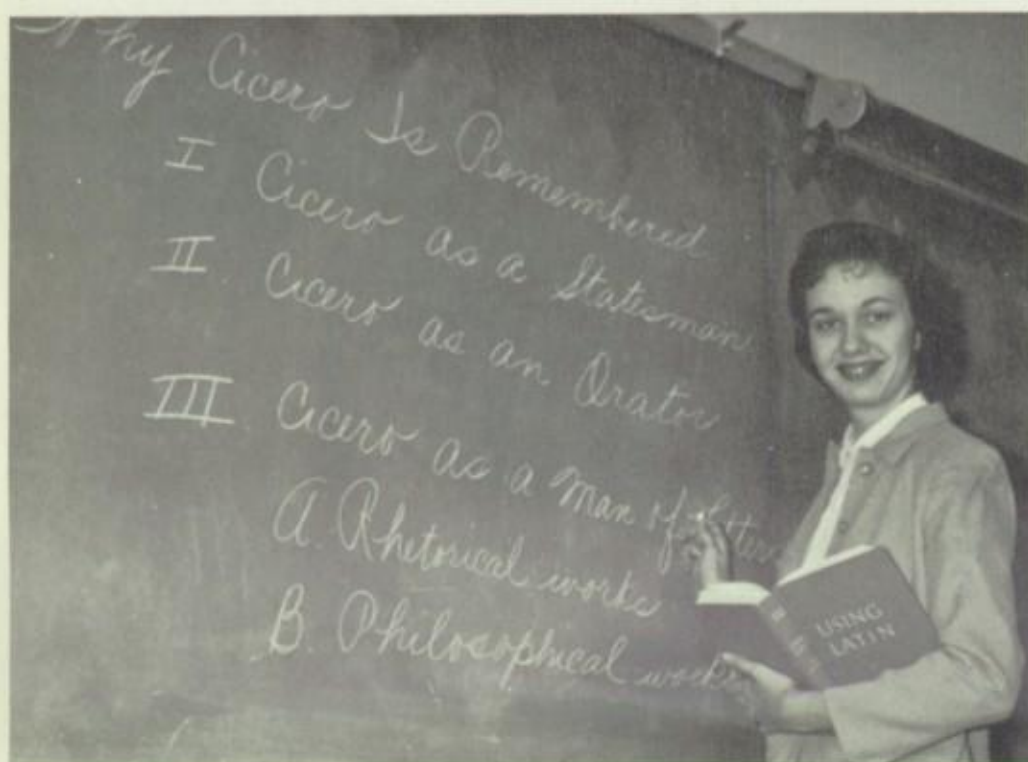 Why Cicero Is Remembered
I Cicero as a Statesman
II Cicero as an Orator
III Cicero as a Man of Letters
A. Rhetorical works
B. Philosophical works
USING
LATIN